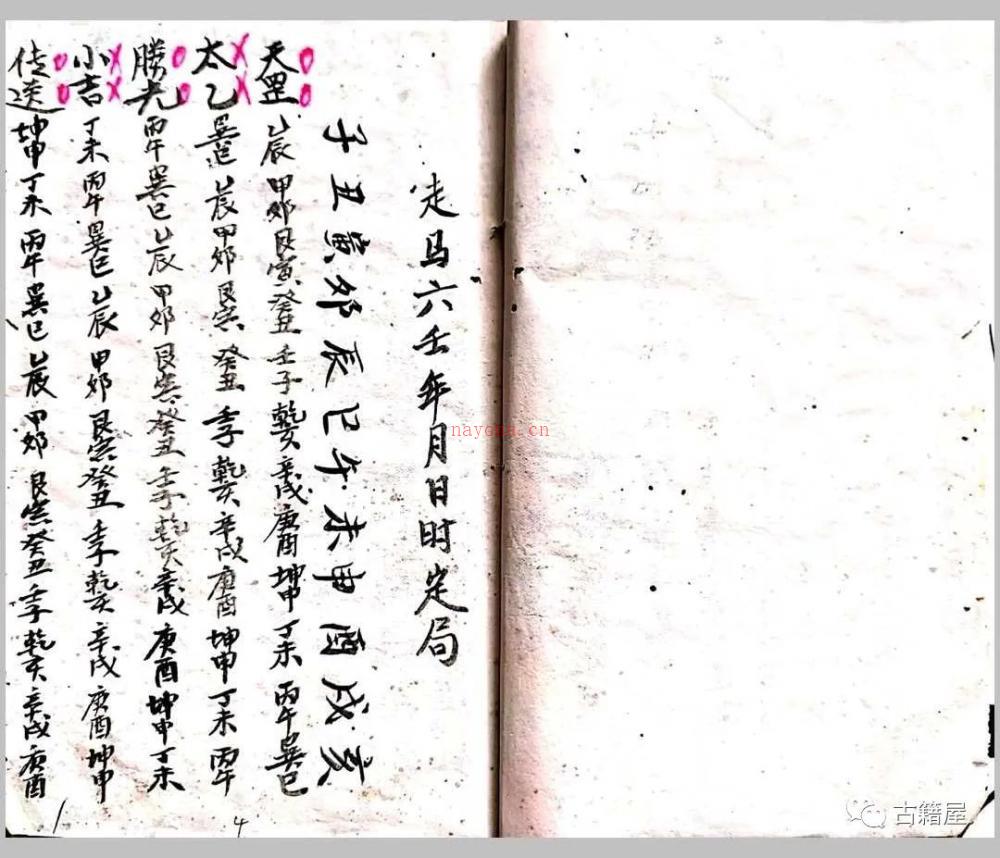 走马六壬年月日时定局
子丑寅卯辰巳午未申酉戌亥
天罡 乙辰 甲卯 艮寅 癸丑 壬子 乾亥 辛戌 庚酉 坤申 丁未 丙午 巽巳
太乙 巽巳 乙辰 甲卯 艮寅 癸丑 壬子 乾亥 辛戌 庚酉 坤申 丁未 丙午
勝光 丙午 巽巳 乙辰 甲卯 艮寅 癸丑 壬子 乾亥 辛戌 庚酉 坤申 丁未
小吉 丁未 丙午 巽巳 乙辰 甲卯 艮寅 癸丑 壬子 乾亥 辛戌 庚酉 坤申
传送 坤申 丁未 丙午 巽巳 乙辰 甲卯 艮寅 癸丑 壬子 乾亥 辛戌 庚酉
4
1
nayona.cn
古籍屋